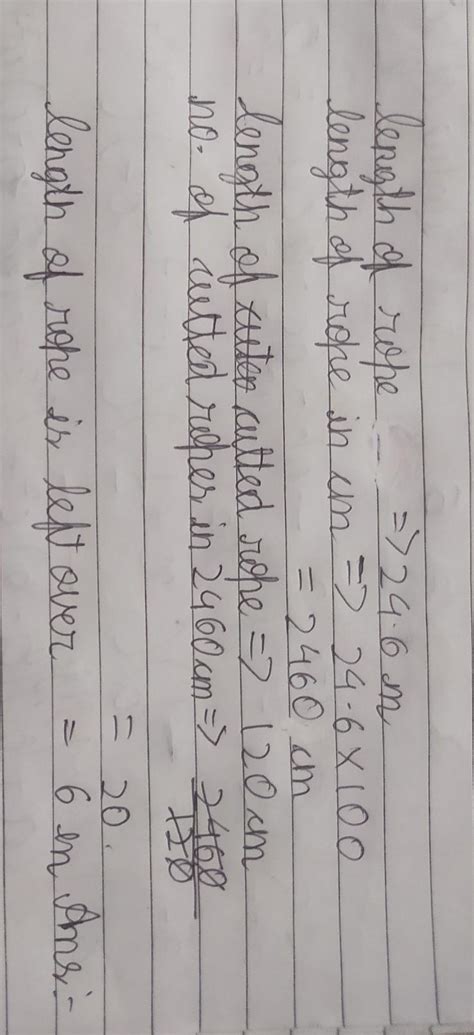 length of rope => 24.6 m
length of rope in cm => 24.6 × 100
= 2460 cm
length of cutted rope => 120 cm
no. of cutted ropes in 2460 cm => 2460
120
= 20.
length of rope is left over = 6 m Ans:-